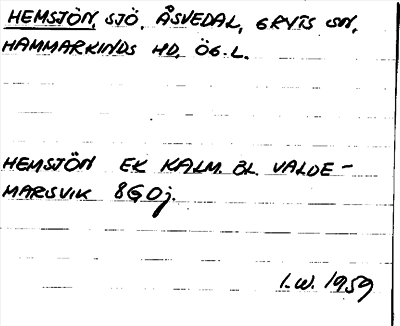 HEMSJÖN, SJÖ, ÅSVEDAL, GRYTS SN,
HAMMARKINDS HD, ÖG. L.
HEMSJÖN EK KALM. BL. VALDE-
MARSVIK 8G0j.
I.W. 1959